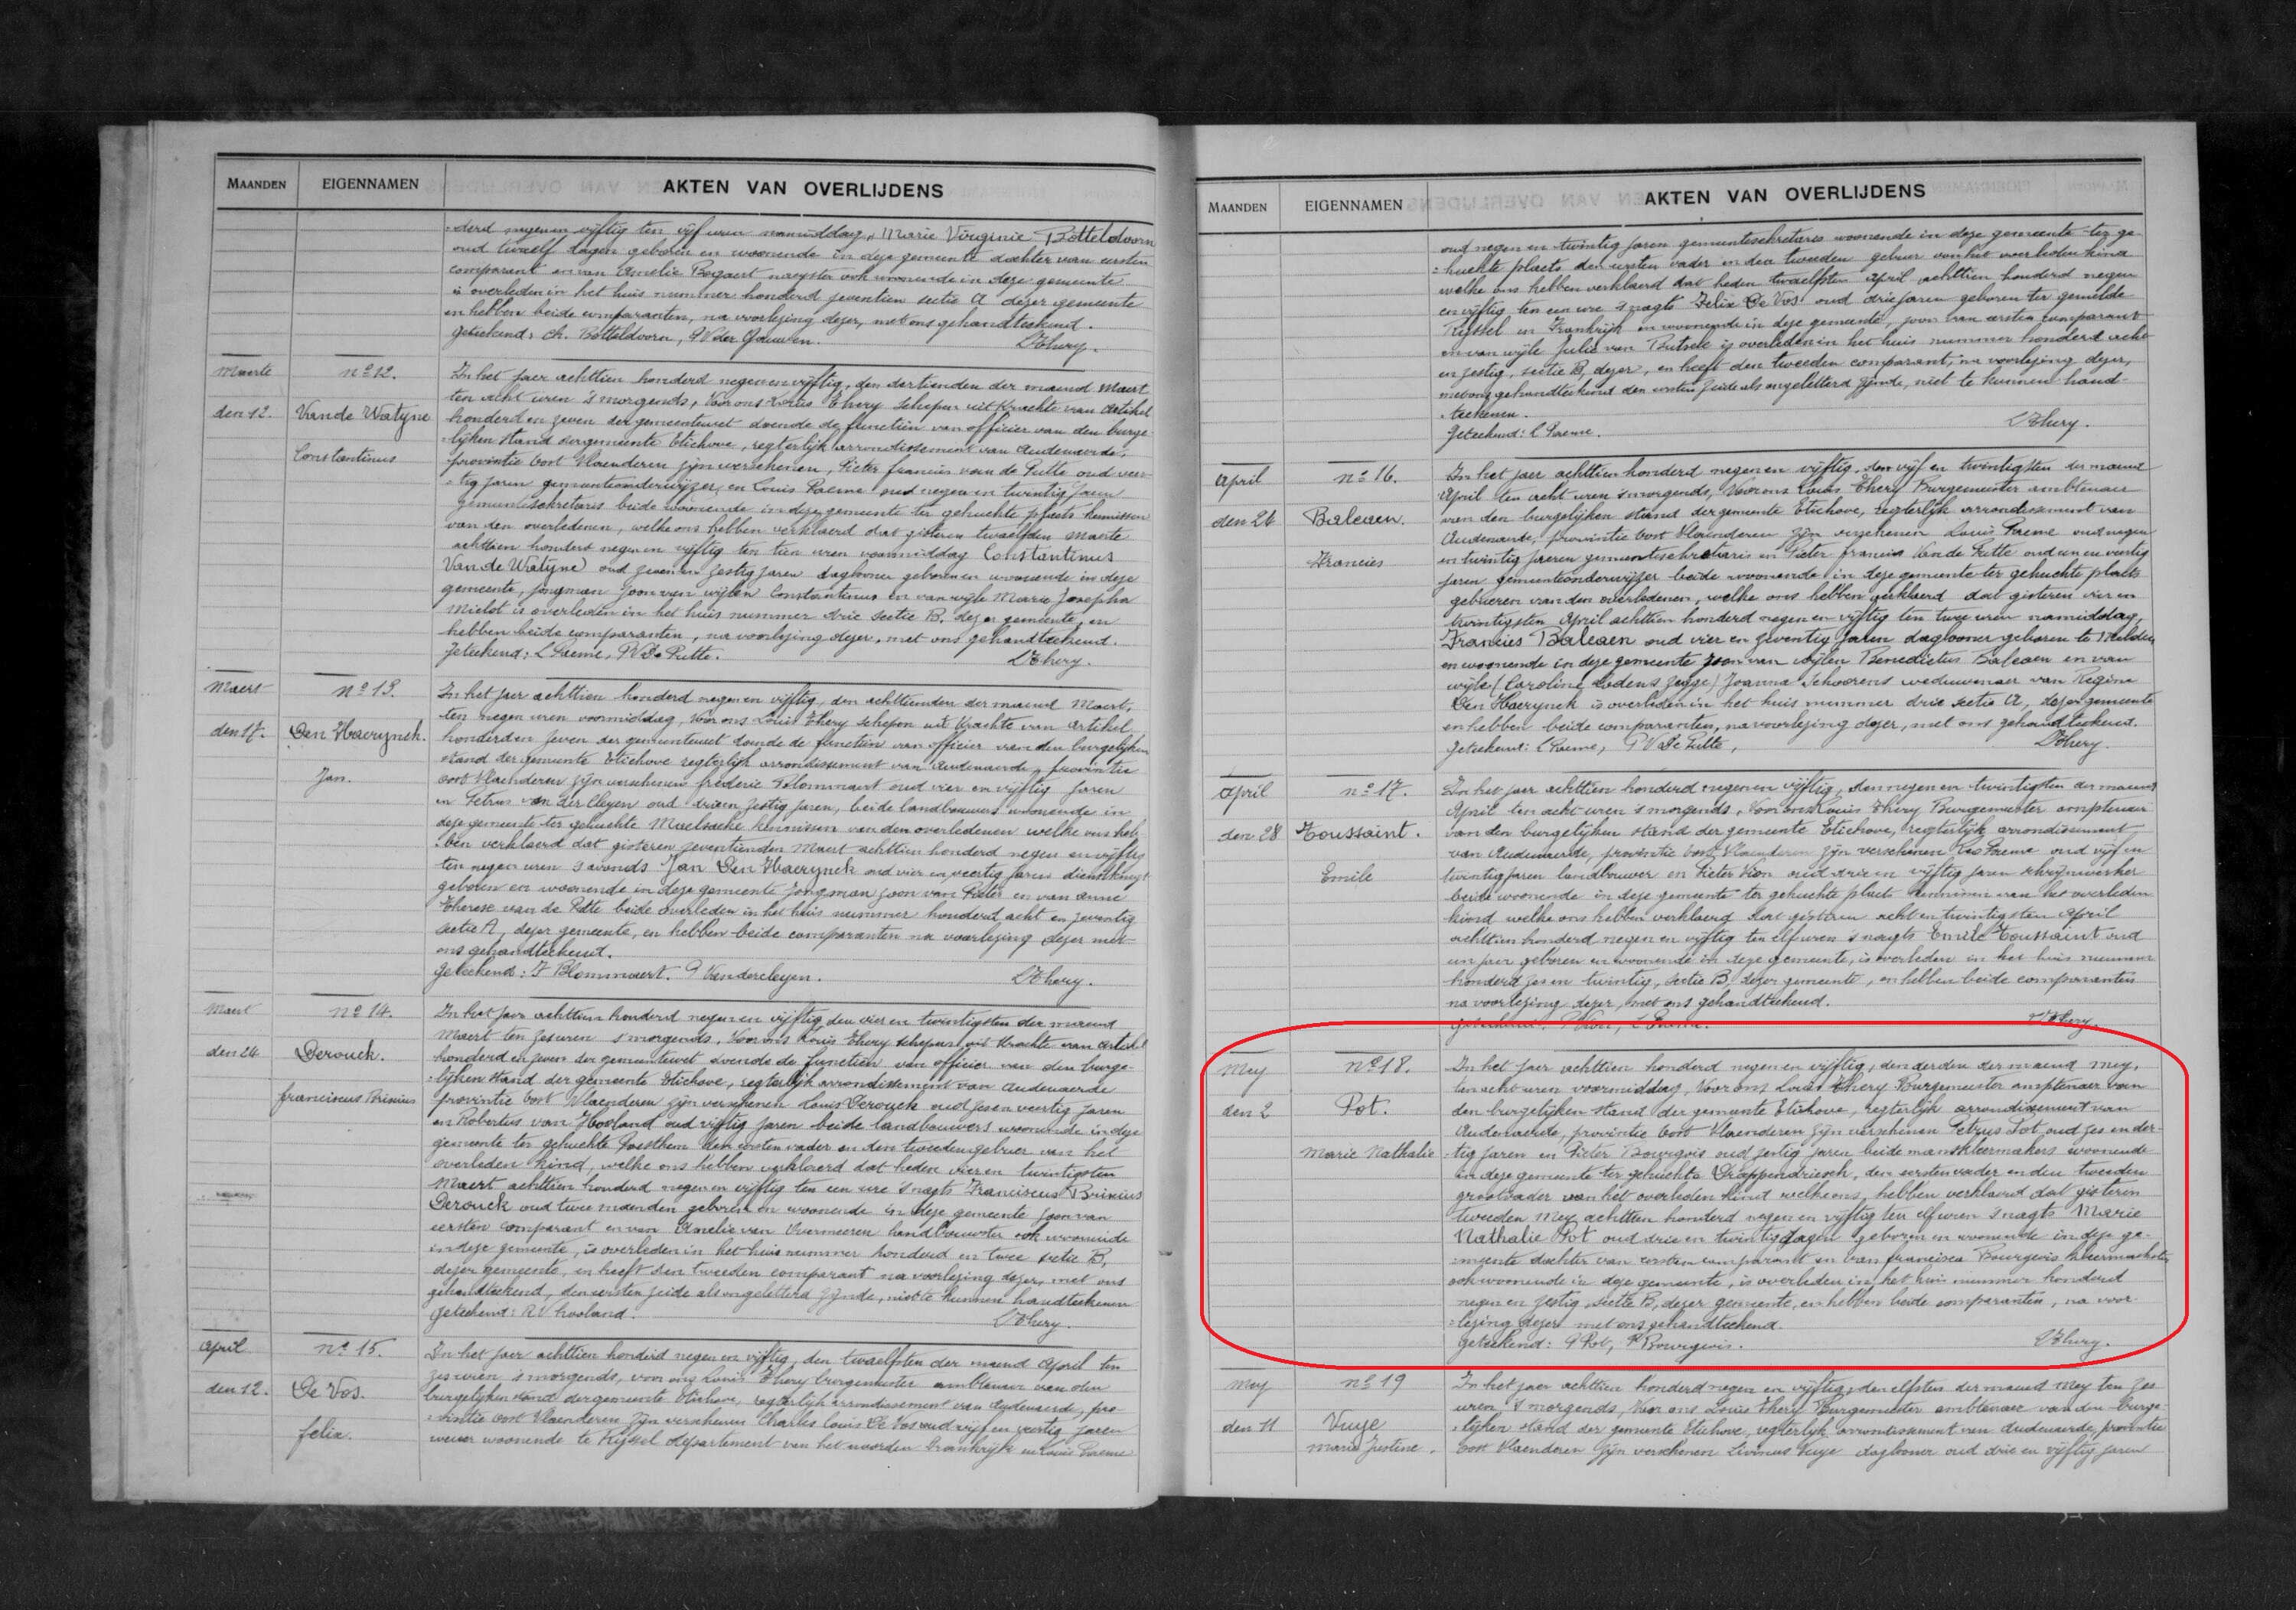 MAANDEN EIGENNAMEN AKTEN VAN OVERLIJDENS
:derd negen en vijftig ten vijf uren namiddag, Marie Virginie Botteldoorn
oud twaelf dagen geboren en woonende in deze gemeente dochter van eersten
comparant en van Amelie Bogaert naeyster ook woonende in deze gemeente
is overleden in het huis nummer honderd zeventien sectie A dezer gemeente
en hebben beide comparanten, na voorlezing dezer, met ons gehandteekend.
Geteekend: Ch. Botteldoorn, 
L Thery.
Maerte
den 12.
No 12.
Van de Watyne
Constantinus
In het jaer achttien honderd negen en vijftig, den dertienden der maend Maert
ten acht uren 's morgends, Voor ons Louis Thery Schepen uit Krachte van Artikel
honderd en zeven der gemeentewet doende de functiën van officier van den burge-
:lijken stand der gemeente Etichove, regterlijk arrondissement van Audenaerde,
provintie Oost Vlaenderen zijn verschenen, Pieter francies van de Putte oud veer-
:tig jaren gemeenteonderwijzer, en Louis Raeme oud negen en twintig jaren
gemeentesekretaris beide woonende in deze gemeente ter gehuchte plaets kennissen
van den overledenen, welke ons hebben verklaerd dat gisteren twaelfden Maerte
achttien honderd negen en vijftig ten tien uren voormiddag Constantinus
Van de Watyne oud zeven en zestig jaren daglooner geboren en woonende in deze
gemeente, jongman zoon van wijlen Constantinus en van wijle Marie Josepha
Mielot is overleden in het huis nummer drie sectie B. dezer gemeente, en
hebben beide comparanten, na voorlezing dezer, met ons gehandteekend.
Geteekend: L Raeme, P V De Putte.
L Thery.
Maert
den 17.
No 13.
Den Haerynck.
Jan.
In het jaer achttien honderd negen en vijftig, den achttienden der maend Maert,
ten negen uren voormiddag, voor ons Louis Thery schepen uit Krachte van Artikel
honderd en zeven der gemeentewet doende de functiën van officier van den burgelijken
stand der gemeente Etichove regterlijk arrondissement van Audenaerde, provintie
Oost Vlaenderen zijn verschenen frederic Blommaert oud vier en vijftig jaren
en Petrus van der Cleyen oud drie en zestig jaren, beide landbouwers woonende in
deze gemeente ter gehuchte Maelzacke kennissen van den overledenen welke ons heb-
:ben verklaerd dat gisteren zeventienden Maert achttien honderd negen en vijftig
ten negen uren 's avonds Jan Den Haerynck oud vier en veertig jaren dienstknegt
geboren en woonende in deze gemeente Jongman zoon van Pieter en van Anne
Therese van de Putte beide overleden in het huis nummer honderd acht en zeventig
sectie A, dezer gemeente, en hebben beide comparanten na voorlezing dezer met
ons gehandteekend.
Geteekend: F Blommaert. P Vandercleyen.
L Thery.
Maert
den 24
No 14.
Derouck.
franciscus Brixius
In het jaer achttien honderd negen en vijftig, den vier en twintigsten der maend
Maert ten zes uren 's morgends, Voor ons Louis Thery schepen uit Krachte van Artikel
honderd en zeven der gemeentewet doende de functiën van officier van den burge-
:lijken stand der gemeente Etichove, regterlijk arrondissement van Audenaerde
provintie Oost Vlaenderen zijn verschenen Louis Derouck oud zes en veertig jaren
en Robertus van Hooland oud vijftig jaren beide landbouwers woonende in deze
gemeente ter gehuchte den eersten vader en den tweeden gebuer van het
overleden kind, welke ons hebben verklaerd dat heden vier en twintigsten
Maert achttien honderd negen en vijftig ten een ure 's nagts Franciscus Brixius
Derouck oud twee maenden geboren en woonende in deze gemeente zoon van
eersten comparant en van Amelie van Overmeeren landbouwster ook woonende
in deze gemeente, is overleden in het huis nummer honderd en twee sectie B,
dezer gemeente, en heeft den tweeden comparant na voorlezing dezer, met ons
gehandteekend, den eersten zeide als ongeletterd zijnde, niet te kunnen handteekenen
Geteekend: R V hooland.
L Thery.
April
den 12.
No 15.
De Vos.
felix.
In het jaer achttien honderd negen en vijftig, den twaelfsten der maend April ten
zes uren 's morgends, voor ons Louis Thery burgemeester ambtenaer van den
burgelijken stand der gemeente Etichove, regterlijk arrondissement van Audenaerde, pro-
:vintie Oost Vlaenderen zijn verschenen Charles Louis De Vos oud vijf en veertig jaren
wever woonende te Ryssel departement van het noorden Frankrijk en Louis Raeme
MAANDEN EIGENNAMEN AKTEN VAN OVERLIJDENS
oud negen en twintig jaren gemeentesekretaris woonende in deze gemeente ter ge-
:huchte plaets den eersten vader en den tweeden gebuer van het overleden kind
welke ons hebben verklaerd dat heden twaelfsten April achttien honderd negen
en vijftig ten een ure 's nagts Felix De Vos oud drie jaren geboren ter gemelde
Ryssel in Frankrijk en woonende in deze gemeente, zoon van eersten comparant
en van wijle Julie van Butsele is overleden in het huis nummer honderd acht
en zestig, sectie B, dezer, en heeft den tweeden comparant, na voorlezing dezer,
met ons gehandteekend den eersten zeide als ongeletterd zijnde, niet te kunnen hand-
:teekenen.
Geteekend: L Raeme.
L Thery.
April
den 24
No 16.
Balcaen.
Francies
In het jaer achttien honderd negen en vijftig, den vijf en twintigsten der maend
April ten acht uren 's morgends, Voor ons Louis Thery Burgemeester ambtenaer
van den burgelijken stand der gemeente Etichove, regterlijk arrondissement van
Audenaerde, provintie Oost Vlaenderen zijn verschenen Louis Raeme oud negen
en twintig jaren gemeentesekretaris en Pieter francies Van de Putte oud een en veertig
jaren gemeenteonderwijzer beide woonende in deze gemeente ter gehuchte plaets
gebueren van den overledenen, welke ons hebben verklaerd dat gisteren vier en
twintigsten April achttien honderd negen en vijftig ten twee uren namiddag,
Francies Balcaen oud vier en zeventig jaren daglooner geboren te Melden
en woonende in deze gemeente zoon van wijlen Benedictus Balcaen en van
wijle (Caroline Lodens zegge) Joanna Schoorens weduwenaer van Regine
Den Haerynck is overleden in het huis nummer drie sectie A, dezer gemeente
en hebben beide comparanten, na voorlezing dezer, met ons gehandteekend.
Geteekend: L Raeme, P V De Putte,
L Thery.
April
den 28
No 17.
Toussaint.
Emile
In het jaer achttien honderd negen en vijftig, den negen en twintigsten der maend
April ten acht uren 's morgends, Voor ons Louis Thery Burgemeester amptenaer
van den burgelijken stand der gemeente Etichove, regterlijk arrondissement
van Audenaerde, provintie Oost Vlaenderen zijn verschenen Raeme oud vijf en
twintig jaren landbouwer en Pieter oud drie en vijftig jaren schrijnwerker
beide woonende in deze gemeente ter gehuchte plaets kennissen van het overleden
kind welke ons hebben verklaerd dat gisteren acht en twintigsten April
achttien honderd negen en vijftig ten elf uren 's nagts Emile Toussaint oud
een jaer geboren en woonende in deze gemeente, is overleden in het huis nummer
honderd zes en twintig, sectie B. dezer gemeente, en hebben beide comparanten
na voorlezing dezer, met ons gehandteekend.
Geteekend: Raeme.
L Thery.
Mey
den 2
No 18.
Pot.
Marie Nathalie
In het jaer achttien honderd negen en vijftig, den derden der maend Mey,
ten acht uren voormiddag, Voor ons Louis Thery Burgemeester amptenaer van
den burgelijken stand der gemeente Etichove, regterlijk arrondissement van
Audenaerde, provintie Oost Vlaenderen zijn verschenen Petrus Pot oud zes en der-
:tig jaren en Pieter Bourgois oud zestig jaren beide manskleermakers woonende
in deze gemeente ter gehuchte Drappendriesch, den eersten vader en den tweeden
grootvader van het overleden kind welke ons, hebben verklaerd dat gisteren
tweeden Mey achttien honderd negen en vijftig ten elf uren 's nagts Marie
Nathalie Pot oud drie en twintig dagen geboren en woonende in deze ge-
:meente dochter van eersten comparant en van francisca Bourgois kleermaekster
ook woonende in deze gemeente, is overleden in het huis nummer honderd
negen en zestig sectie B, dezer gemeente, en hebben beide comparanten, na voor-
:lezing dezer met ons gehandteekend.
Geteekend: P Pot, P Bourgois.
L Thery.
Mey
den 11
No 19
Vuye
Marie Justine.
In het jaer achttien honderd negen en vijftig, den elfsten der maend Mey ten zes
uren 's morgends, Voor ons Louis Thery Burgemeester ambtenaer van den burge-
:lijken stand der gemeente Etichove, regterlijk arrondissement van Audenaerde, provintie
Oost Vlaenderen zijn verschenen Livinus Vuye daglooner oud drie en vijftig jaren